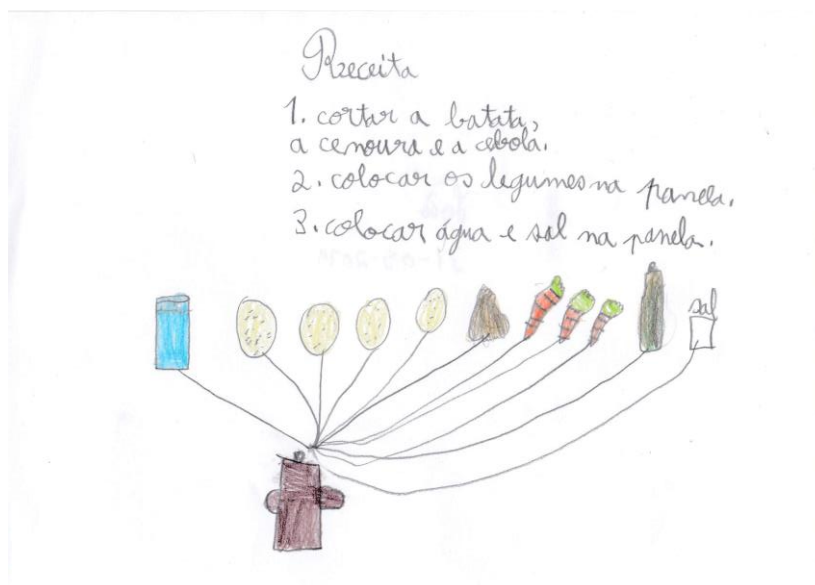 Receita
1. cortar a batata,
a cenoura e a cebola.
2. colocar os legumes na panela.
3. colocar água e sal na panela.
sal